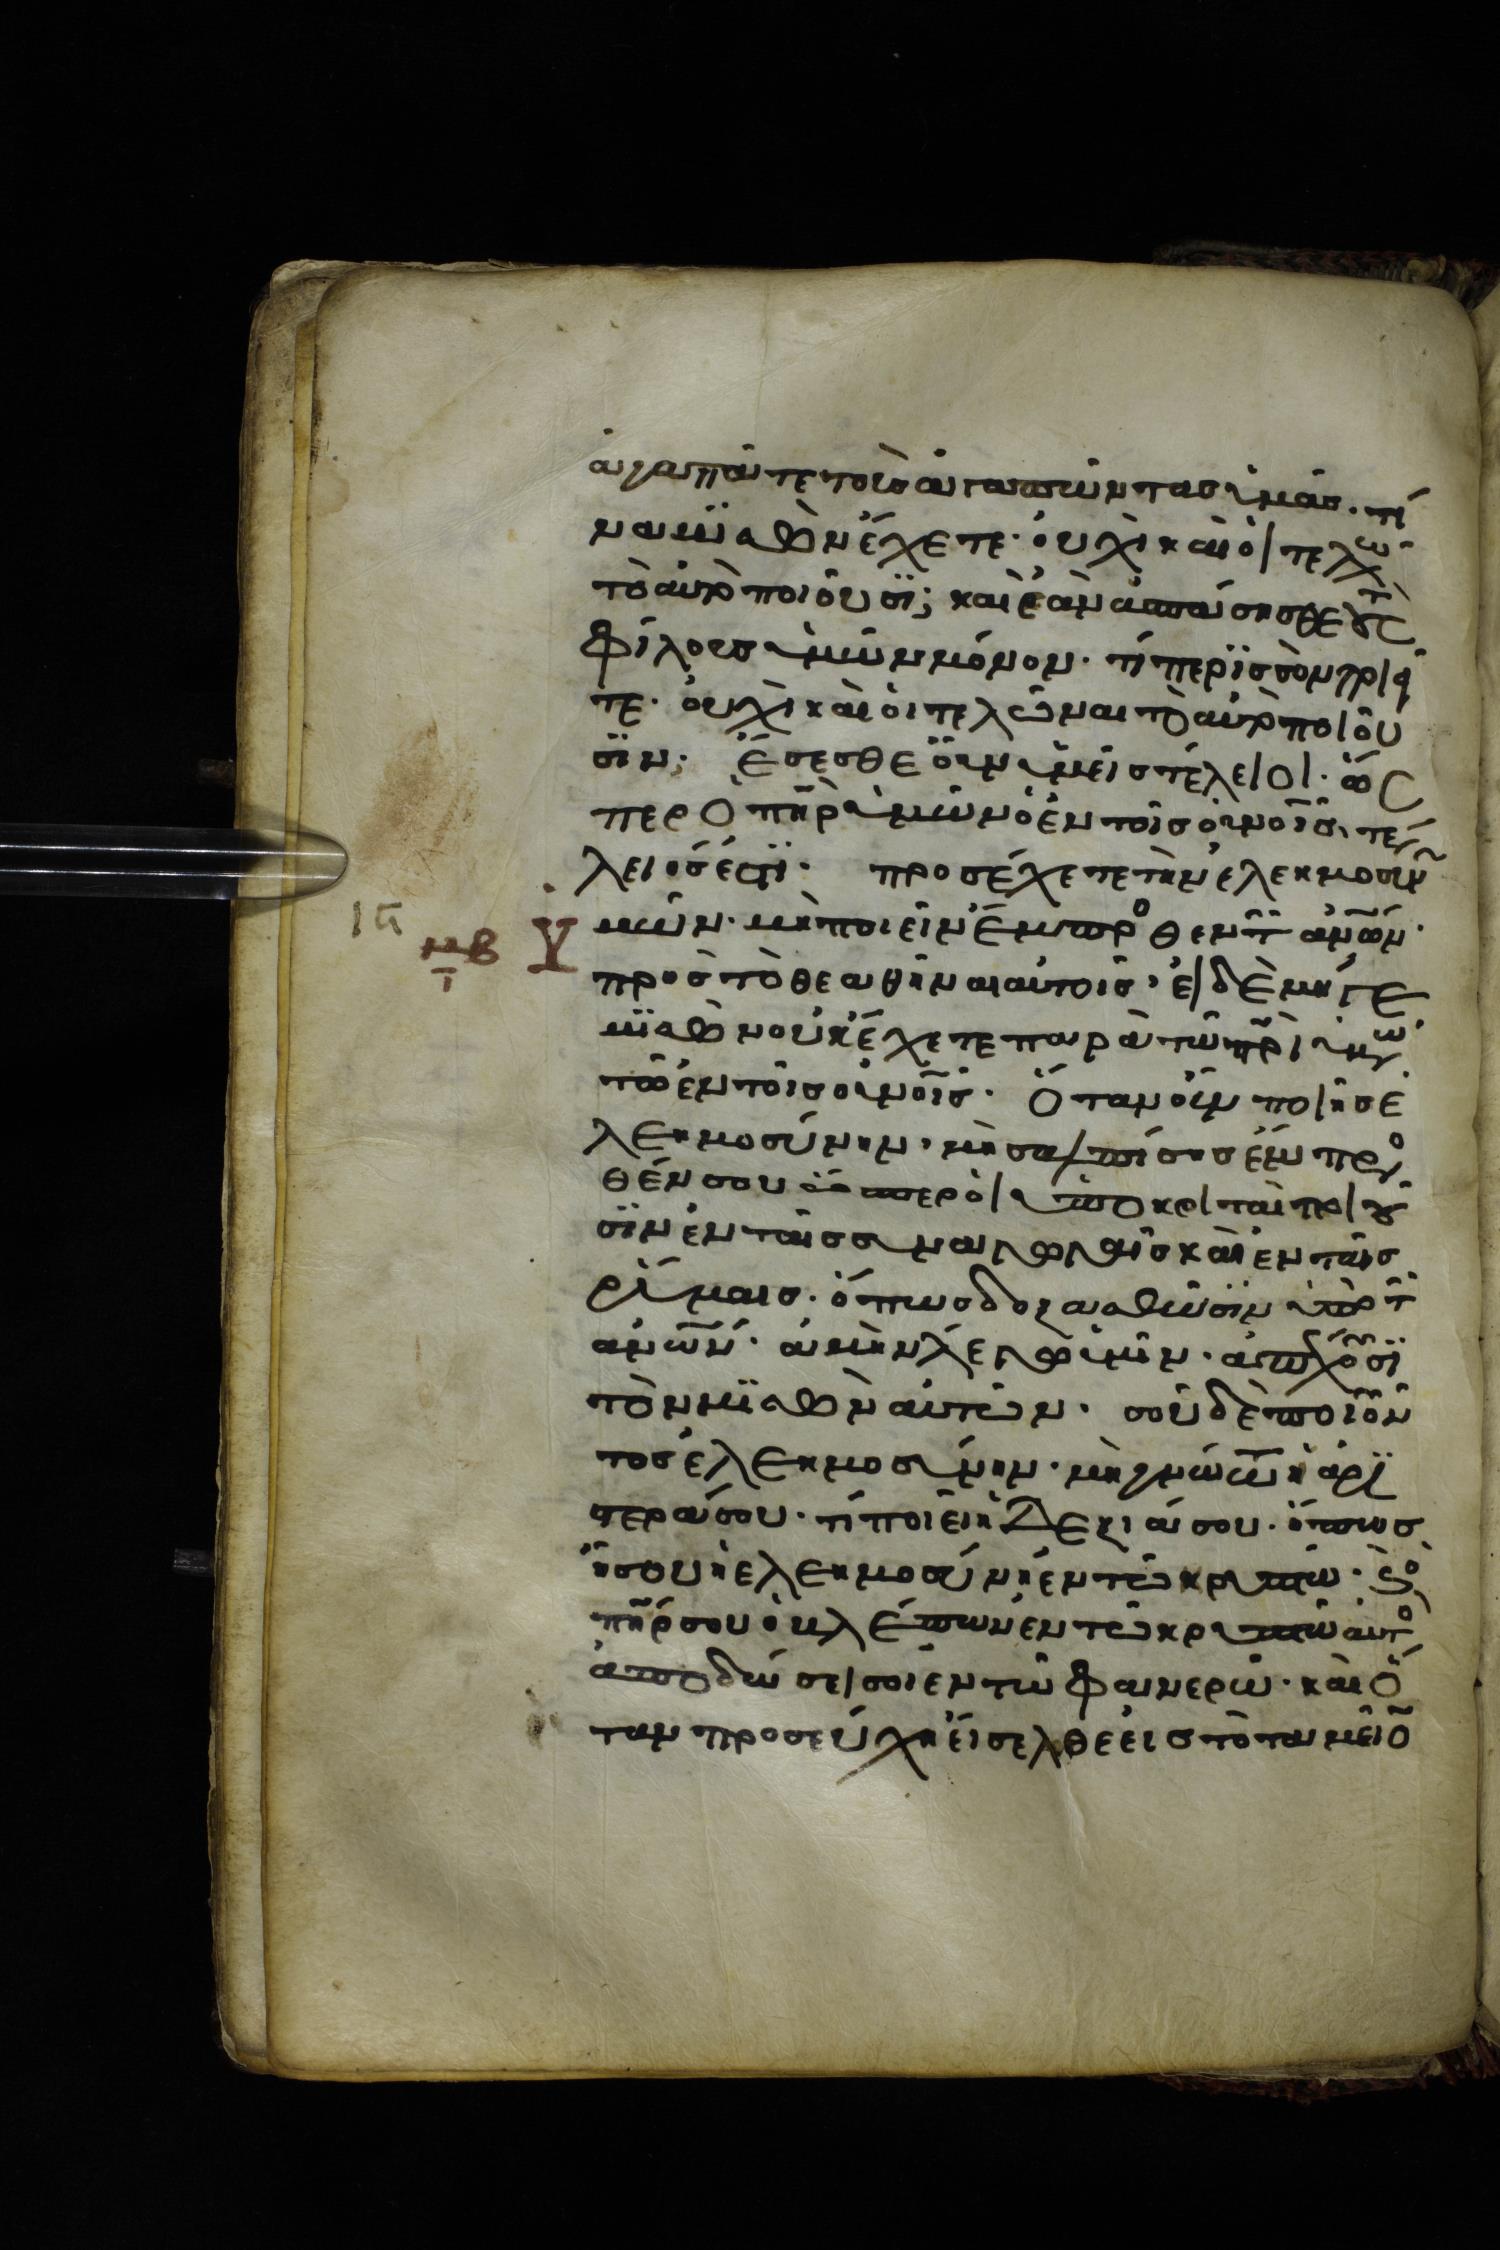 ἀγαπᾶτε τοὺσ ἀγαπῶντασ ὑμᾶσ· τί
να μϊσθὸν ἔχετε· ὀυχὶ καὶ ὁι τελῶ
τὸ ἀυτὸ ποιοῦσϊ; καὶ ἐὰν ἀσπάσησθε τοὺσ
φίλουσ ὑμῶν μόνον· τί περϊσσὸν ποιεῖ
τε· ὀυχὶ καὶ ὁι τελῶναι τὸ ἀυτὸ ποιοῦ
σϊν; Ἔσεσθε οὖν ὑμεῖσ τέλειοι· ὥσ
περ ὁ πη̅ρ ὑμῶν ὁ ἐν τοῖσ ὀυνοῖ̅σ τέ
λειόσ ἐστϊ· προσέχετε τὴν ἐλεημοσύν̅
Ὑμῶν· μὴ ποιεῖν ἔμπροσθεν τ̅ ἀν̅ων·
προσ τὸ θεαθῆναι αὐτοῖσ· ἐι δὲ μήγε
μϊσθὸν οὐκ ἔχετε παρὰ τῶ πρ̅ὶ ὑμῶ
τῶ ἐν τοῖσ ουνοῖ̅σ· Ὅταν οὖν ποιῆσ ἐ
λεημοσύνην· μὴ σαλπίσησ ἔμπροσ
θέν σου ὥσπερ ὁι ὑποκριταὶ ποιοῦ
σϊν ἐν ταῖσ συναγωγαῖσ καὶ ἐν ταῖσ
ρύμαισ· ὅπωσ δοξασθῶσϊν ὑπὸ τ̅
ἀν̅ων· ἀμὴν λέγω ὑμῖν· ἀπέχουσϊ
τὸν μϊσθὸν ἀυτῶν· σοῦ δὲ ποιοῦν
τοσ ἐλεημοσύνην· μὴ γνώτω ἡ ἀρϊ
στερά σου· τί ποιεῖ ἡ Δεξιά σου· ὅπωσ
ῆ σου ἡ ἐλεημοσύνη ἐν τῶ κρυπτῶ· καὶ ὁ
πη̅ρ σου ὁ βλέπων ἐν τῶ κρυπτῶ ἀυτὸ
ἀποδώσει σοι ἐν τῶ φανερῶ· καὶ ὅ
ταν προσεύχη εἴσελθε εισ τὸ ταμεῖο̅
μβ
ι